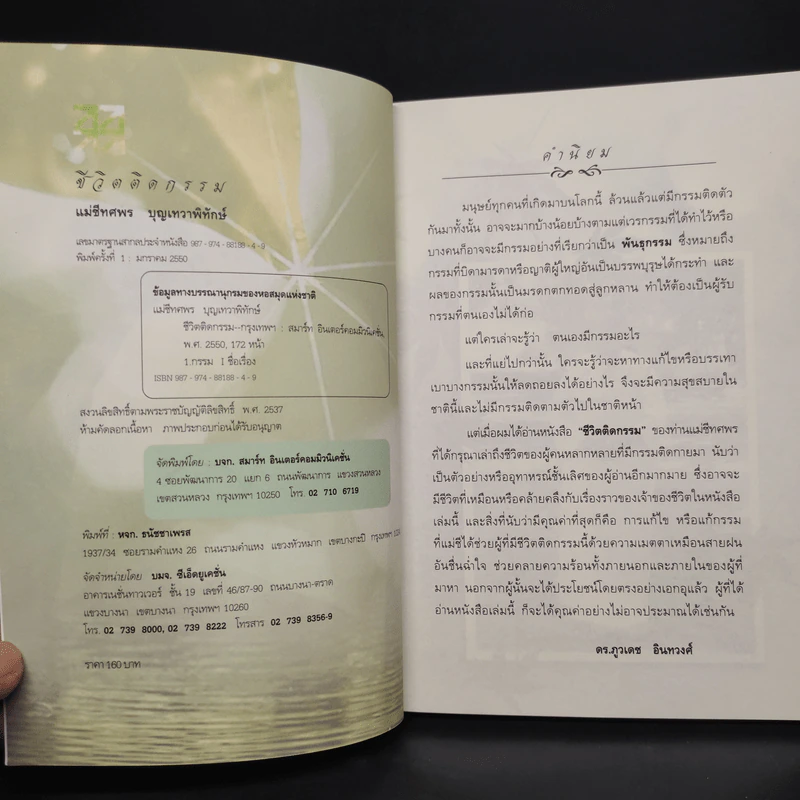 ชีวิตติดกรรม
แม่ชีทศพร บุญเทวาพิทักษ์
เลขมาตรฐานสากลประจำหนังสือ 987 - 974 - 88188 - 4 - 9
พิมพ์ครั้งที่ 1 : มกราคม 2550
ข้อมูลทางบรรณานุกรมของหอสมุดแห่งชาติ
แม่ชีทศพร บุญเทวาพิทักษ์
ชีวิตติดกรรม--กรุงเทพฯ : สมาร์ท อินเตอร์คอมมิวนิเคชั่น,
พ.ศ. 2550, 172 หน้า
1.กรรม I ชื่อเรื่อง
ISBN 987 - 974 - 88188 - 4 - 9
สงวนลิขสิทธิ์ตามพระราชบัญญัติลิขสิทธิ์ พ.ศ. 2537
ห้ามคัดลอกเนื้อหา ภาพประกอบก่อนได้รับอนุญาต
จัดพิมพ์โดย : บจก. สมาร์ท อินเตอร์คอมมิวนิเคชั่น
4 ซอยพัฒนาการ 20 แยก 6 ถนนพัฒนาการ แขวงสวนหลวง
เขตสวนหลวง กรุงเทพฯ 10250 โทร. 02 710 6719
พิมพ์ที่ : หจก. ธนัชชาเพรส
1937/34 ซอยรามคำแหง 26 ถนนรามคำแหง แขวงหัวหมาก เขตบางกะปิ กรุงเทพฯ
จัดจำหน่ายโดย : บมจ. ซีเอ็ดยูเคชั่น
อาคารเนชั่นทาวเวอร์ ชั้น 19 เลขที่ 46/87-90 ถนนบางนา-ตราด
แขวงบางนา เขตบางนา กรุงเทพฯ 10260
โทร. 02 739 8000, 02 739 8222 โทรสาร 02 739 8356-9
ราคา 160 บาท
คำนิยม
มนุษย์ทุกคนที่เกิดมาบนโลกนี้ ล้วนแล้วแต่มีกรรมติดตัว
กันมาทั้งนั้น อาจจะมากบ้างน้อยบ้างตามแต่เวรกรรมที่ได้ทำไว้หรือ
บางคนก็อาจจะมีกรรมอย่างที่เรียกว่าเป็น พันธุกรรม ซึ่งหมายถึง
กรรมที่บิดามารดาหรือญาติผู้ใหญ่อันเป็นบรรพบุรุษได้กระทำ และ
ผลของกรรมนั้นเป็นมรดกตกทอดสู่ลูกหลาน ทำให้ต้องเป็นผู้รับ
กรรมที่ตนเองไม่ได้ก่อ
แต่ใครเล่าจะรู้ว่า ตนเองมีกรรมอะไร
และที่แย่ไปกว่านั้น ใครจะรู้ว่าจะหาทางแก้ไขหรือบรรเทา
เบาบางกรรมนั้นให้ลดถอยลงได้อย่างไร จึงจะมีความสุขสบายใน
ชาตินี้และไม่มีกรรมติดตามตัวไปในชาติหน้า
แต่เมื่อผมได้อ่านหนังสือ "ชีวิตติดกรรม" ของท่านแม่ชีทศพร
ที่ได้กรุณาเล่าถึงชีวิตของผู้คนหลากหลายที่มีกรรมติดกายมา นับว่า
เป็นตัวอย่างหรืออุทาหรณ์ชั้นเลิศของผู้อ่านอีกมากมาย ซึ่งอาจจะ
มีชีวิตที่เหมือนหรือคล้ายคลึงกับเรื่องราวของเจ้าของชีวิตในหนังสือ
เล่มนี้ และสิ่งที่นับว่ามีคุณค่าที่สุดก็คือ การแก้ไข หรือแก้กรรม
ที่แม่ชีได้ช่วยผู้ที่มีชีวิตติดกรรมนี้ด้วยความเมตตาเหมือนสายฝน
อันชื่นฉ่ำใจ ช่วยคลายความร้อนทั้งภายนอกและภายในของผู้ที่
มาหา นอกจากผู้นั้นจะได้ประโยชน์โดยตรงอย่างเอกอุแล้ว ผู้ที่ได้
อ่านหนังสือเล่มนี้ ก็จะได้คุณค่าอย่างไม่อาจประมาณได้เช่นกัน
ดร.ภูวเดช อินทวงศ์